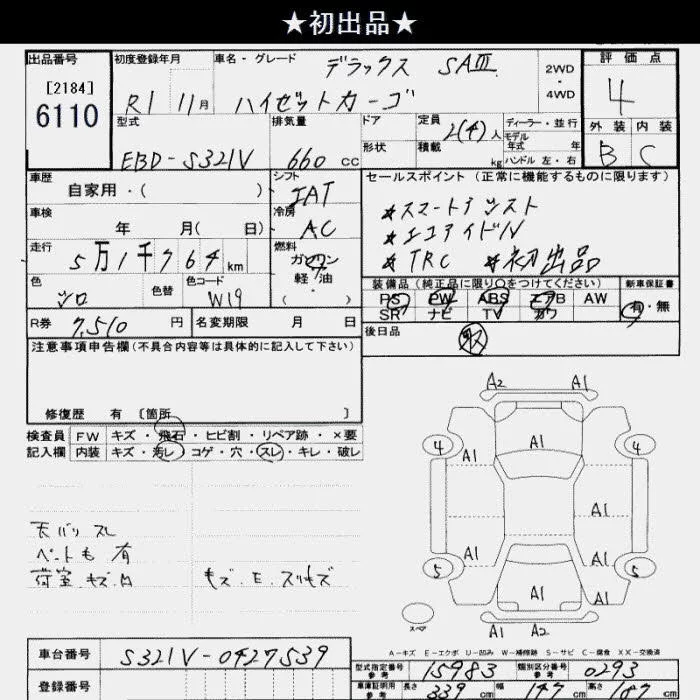 ★初出品★
出品番号
[2184]
6110
初度登録年月
R1 11月
車名・グレード
デラックス SAⅢ
ハイゼットカーゴ
2WD
・
4WD
評価点
4
外装 内装
B C
型式
EBD-S321V
排気量
660 cc
ドア
形状
定員
2(4)人
積載
kg
ディーラー・並行
モデル
年式 年
ハンドル 左・右
車歴
自家用・( )
シフト
IAT
セールスポイント (正常に機能するものに限ります)
★スマートアシスト
★エコアイドル
★TRC ★初出品
車検
年 月( 日)
冷房
AC
走行
5万1千764km
燃料
ガソリン
軽・油
( )
色
シロ
色替
色コード
W19
装備品(純正品に限り○をつけてください)
PS PW ABS エアB AW
SR ナビ TV カワ
新車保証書
有・無
R券 7,510円
名変期限 月 日
後日品
取
注意事項申告欄(不具合内容等は具体的に記入して下さい)
修復歴 有 〔箇所 〕
検査員
記入欄
FW キズ・飛石・ヒビ割・リペア跡・×要
内装 キズ・汚レ・コゲ・穴・スレ・キレ・破レ
天バリ スレ
ペットも 有
荷室 キズ凹
キズ・E・スリキズ
A2 A1
4 A1 4
A1
A1 A1
5 A1 A1 5
A1
A1 A2
スペア
A-キズ E-エクボ U-凹み W-補修跡 S-サビ C-腐食 XX-交換済
車台番号
S321V-0427539
登録番号
型式指定番号
参考
15983
類別区分番号
参考
0293
車庫証明用
参考
長さ 339 cm
幅 147 cm
高さ 187 cm